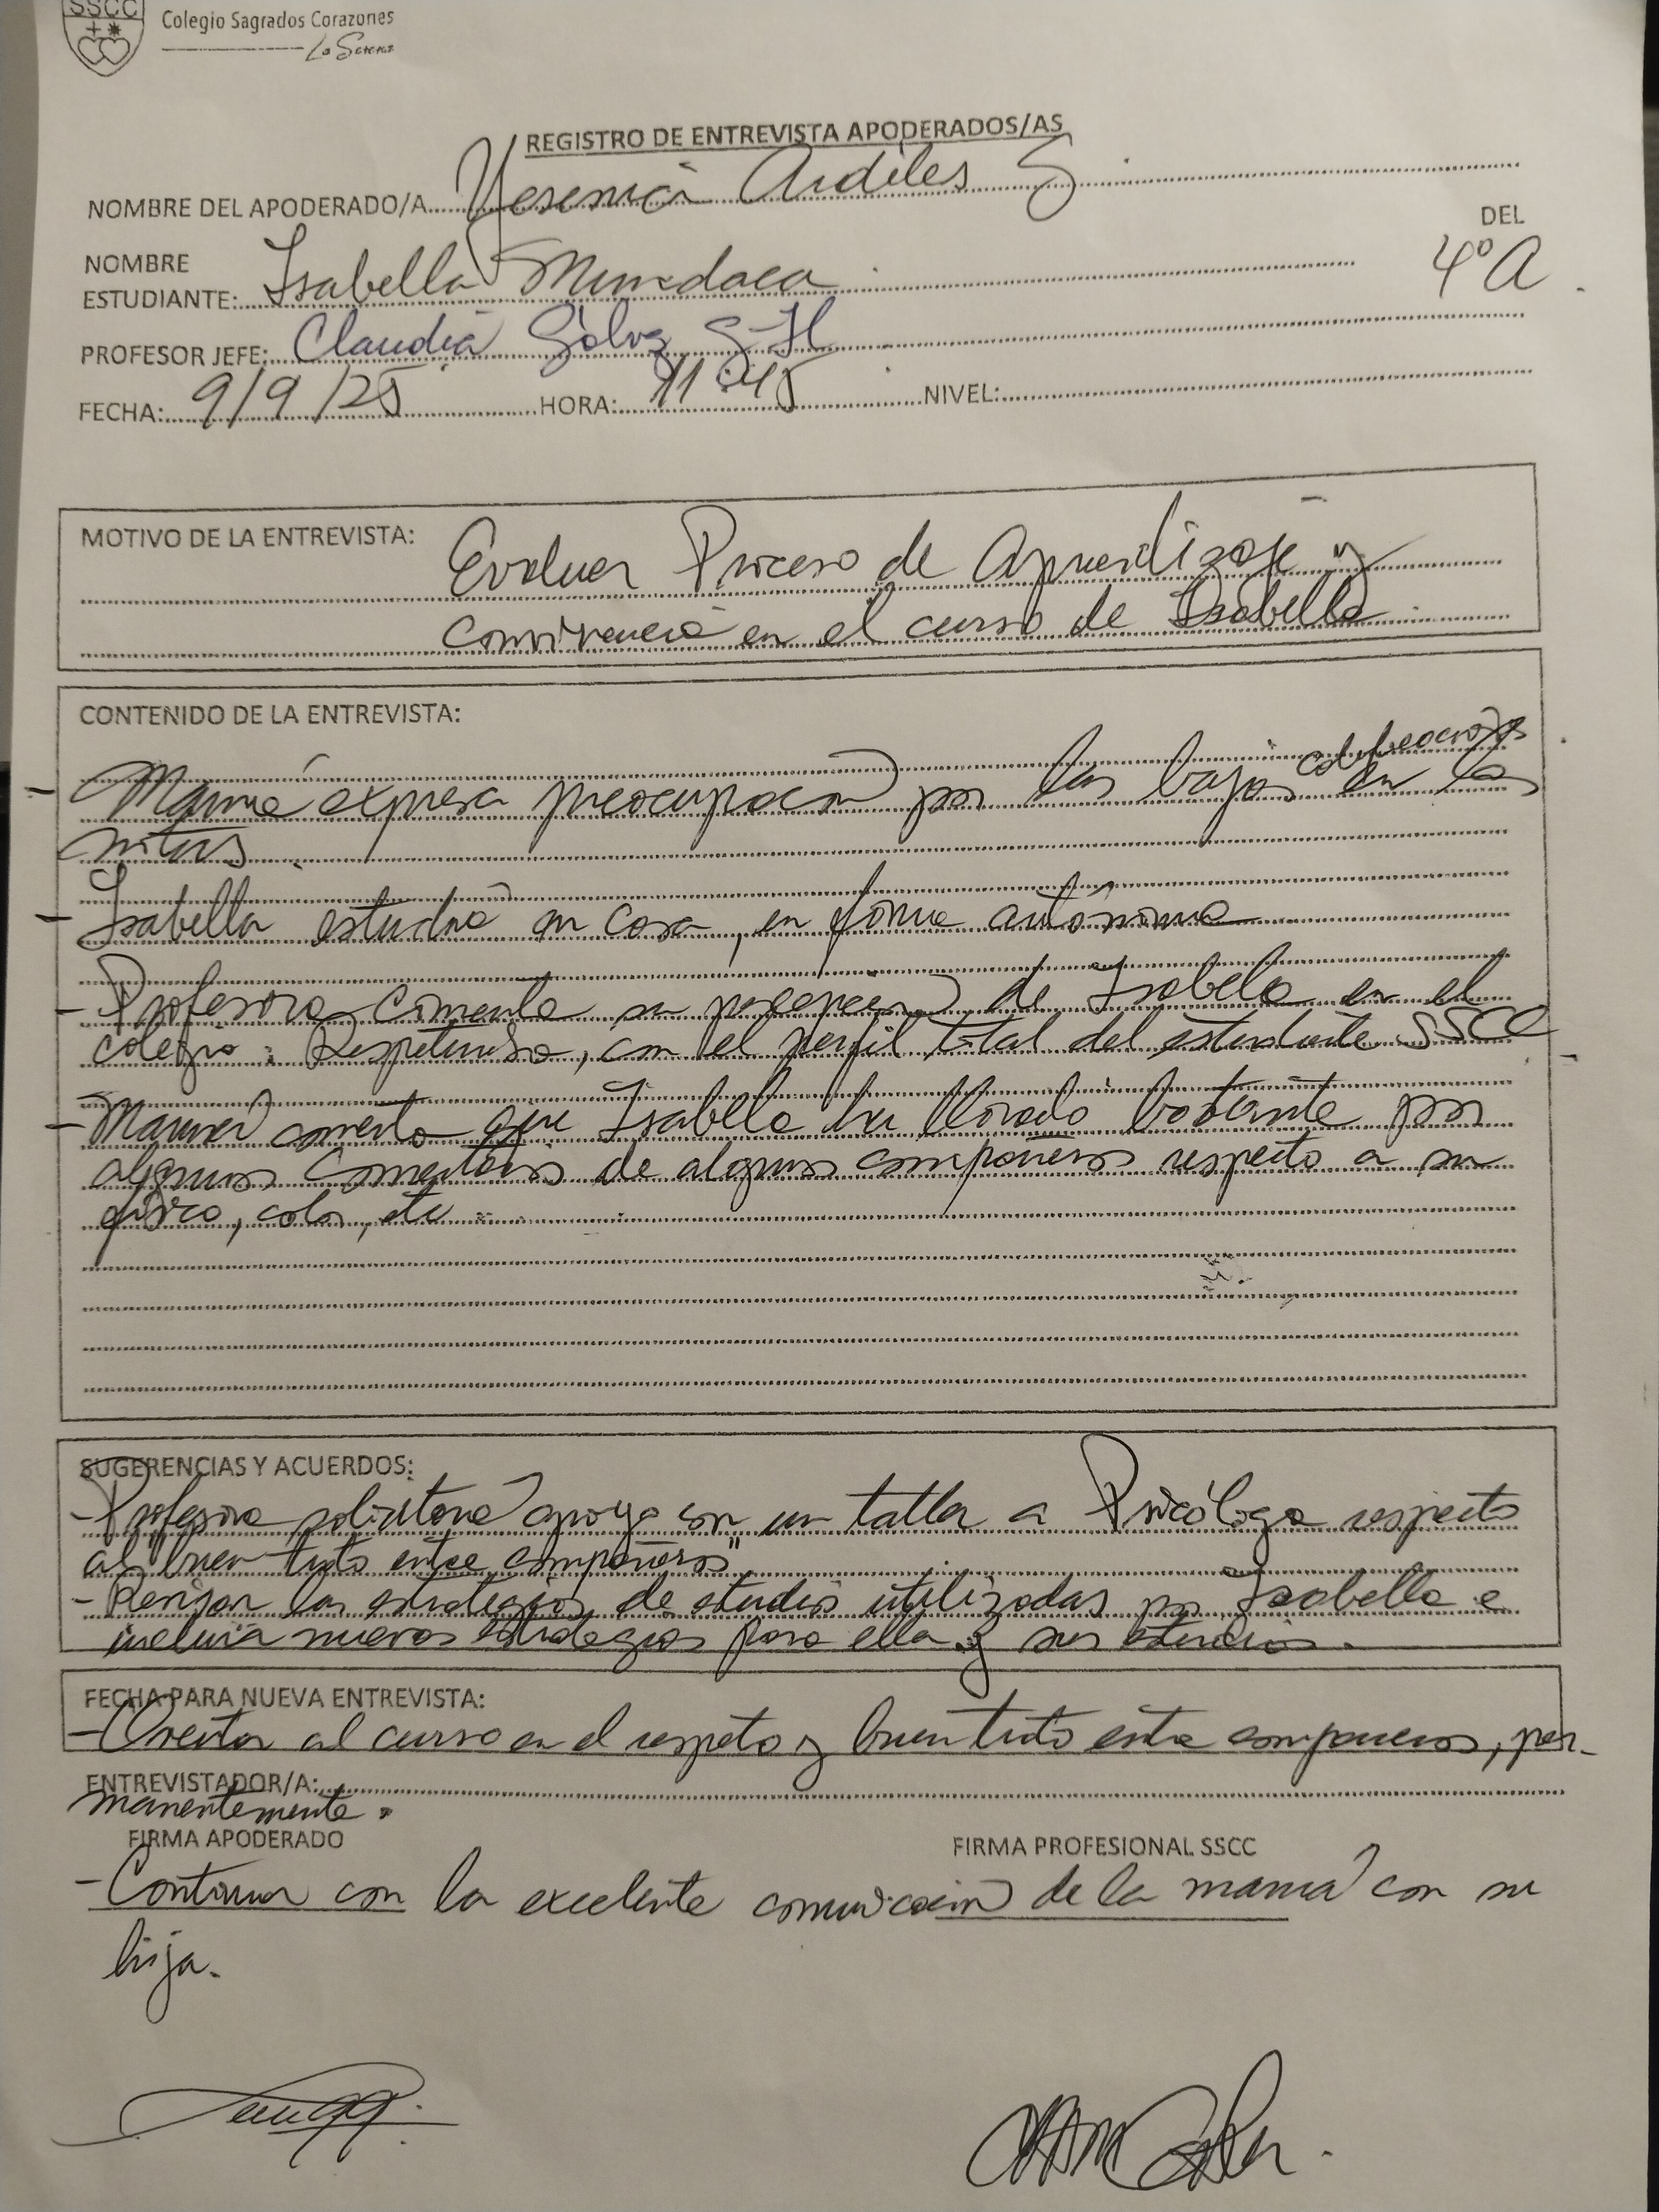 SSCC
Colegio Sagrados Corazones
La Serena
REGISTRO DE ENTREVISTA APODERADOS/AS
NOMBRE DEL APODERADO/A Yesenia Ardiles S
NOMBRE DEL
ESTUDIANTE: Isabella Mundaca 4º A
PROFESOR JEFE: Claudia
FECHA: 9/9/25 HORA: 11:45 NIVEL:
MOTIVO DE LA ENTREVISTA: Evaluar Proceso de Aprendizaje y
convivencia en el curso de Isabella
CONTENIDO DE LA ENTREVISTA:
- Mamá expresa preocupación por las bajas calificaciones en las
notas.
- Isabella estudia en casa, en forma autónoma
- Profesora comenta su percepción de Isabela en el
colegio: Respetuosa, con el perfil total del estudiante SSCC
- Mamá comenta que Isabella ha llorado bastante por
algunos comentarios de algunos compañeros respecto a su
físico, color, etc
SUGERENCIAS Y ACUERDOS:
- Profesora solicitará apoyo con un taller a Psicóloga respecto
al "buen trato entre compañeros"
- Revisar las estrategias de estudio utilizadas por Isabella e
incluir nuevas estrategias para ella y sus
FECHA PARA NUEVA ENTREVISTA:
- Orientar al curso en el respeto y buen trato entre compañeros, per-
ENTREVISTADOR/A:
manentemente.
FIRMA APODERADO FIRMA PROFESIONAL SSCC
- Continuar con la excelente comunicación de la mamá con su
hija.